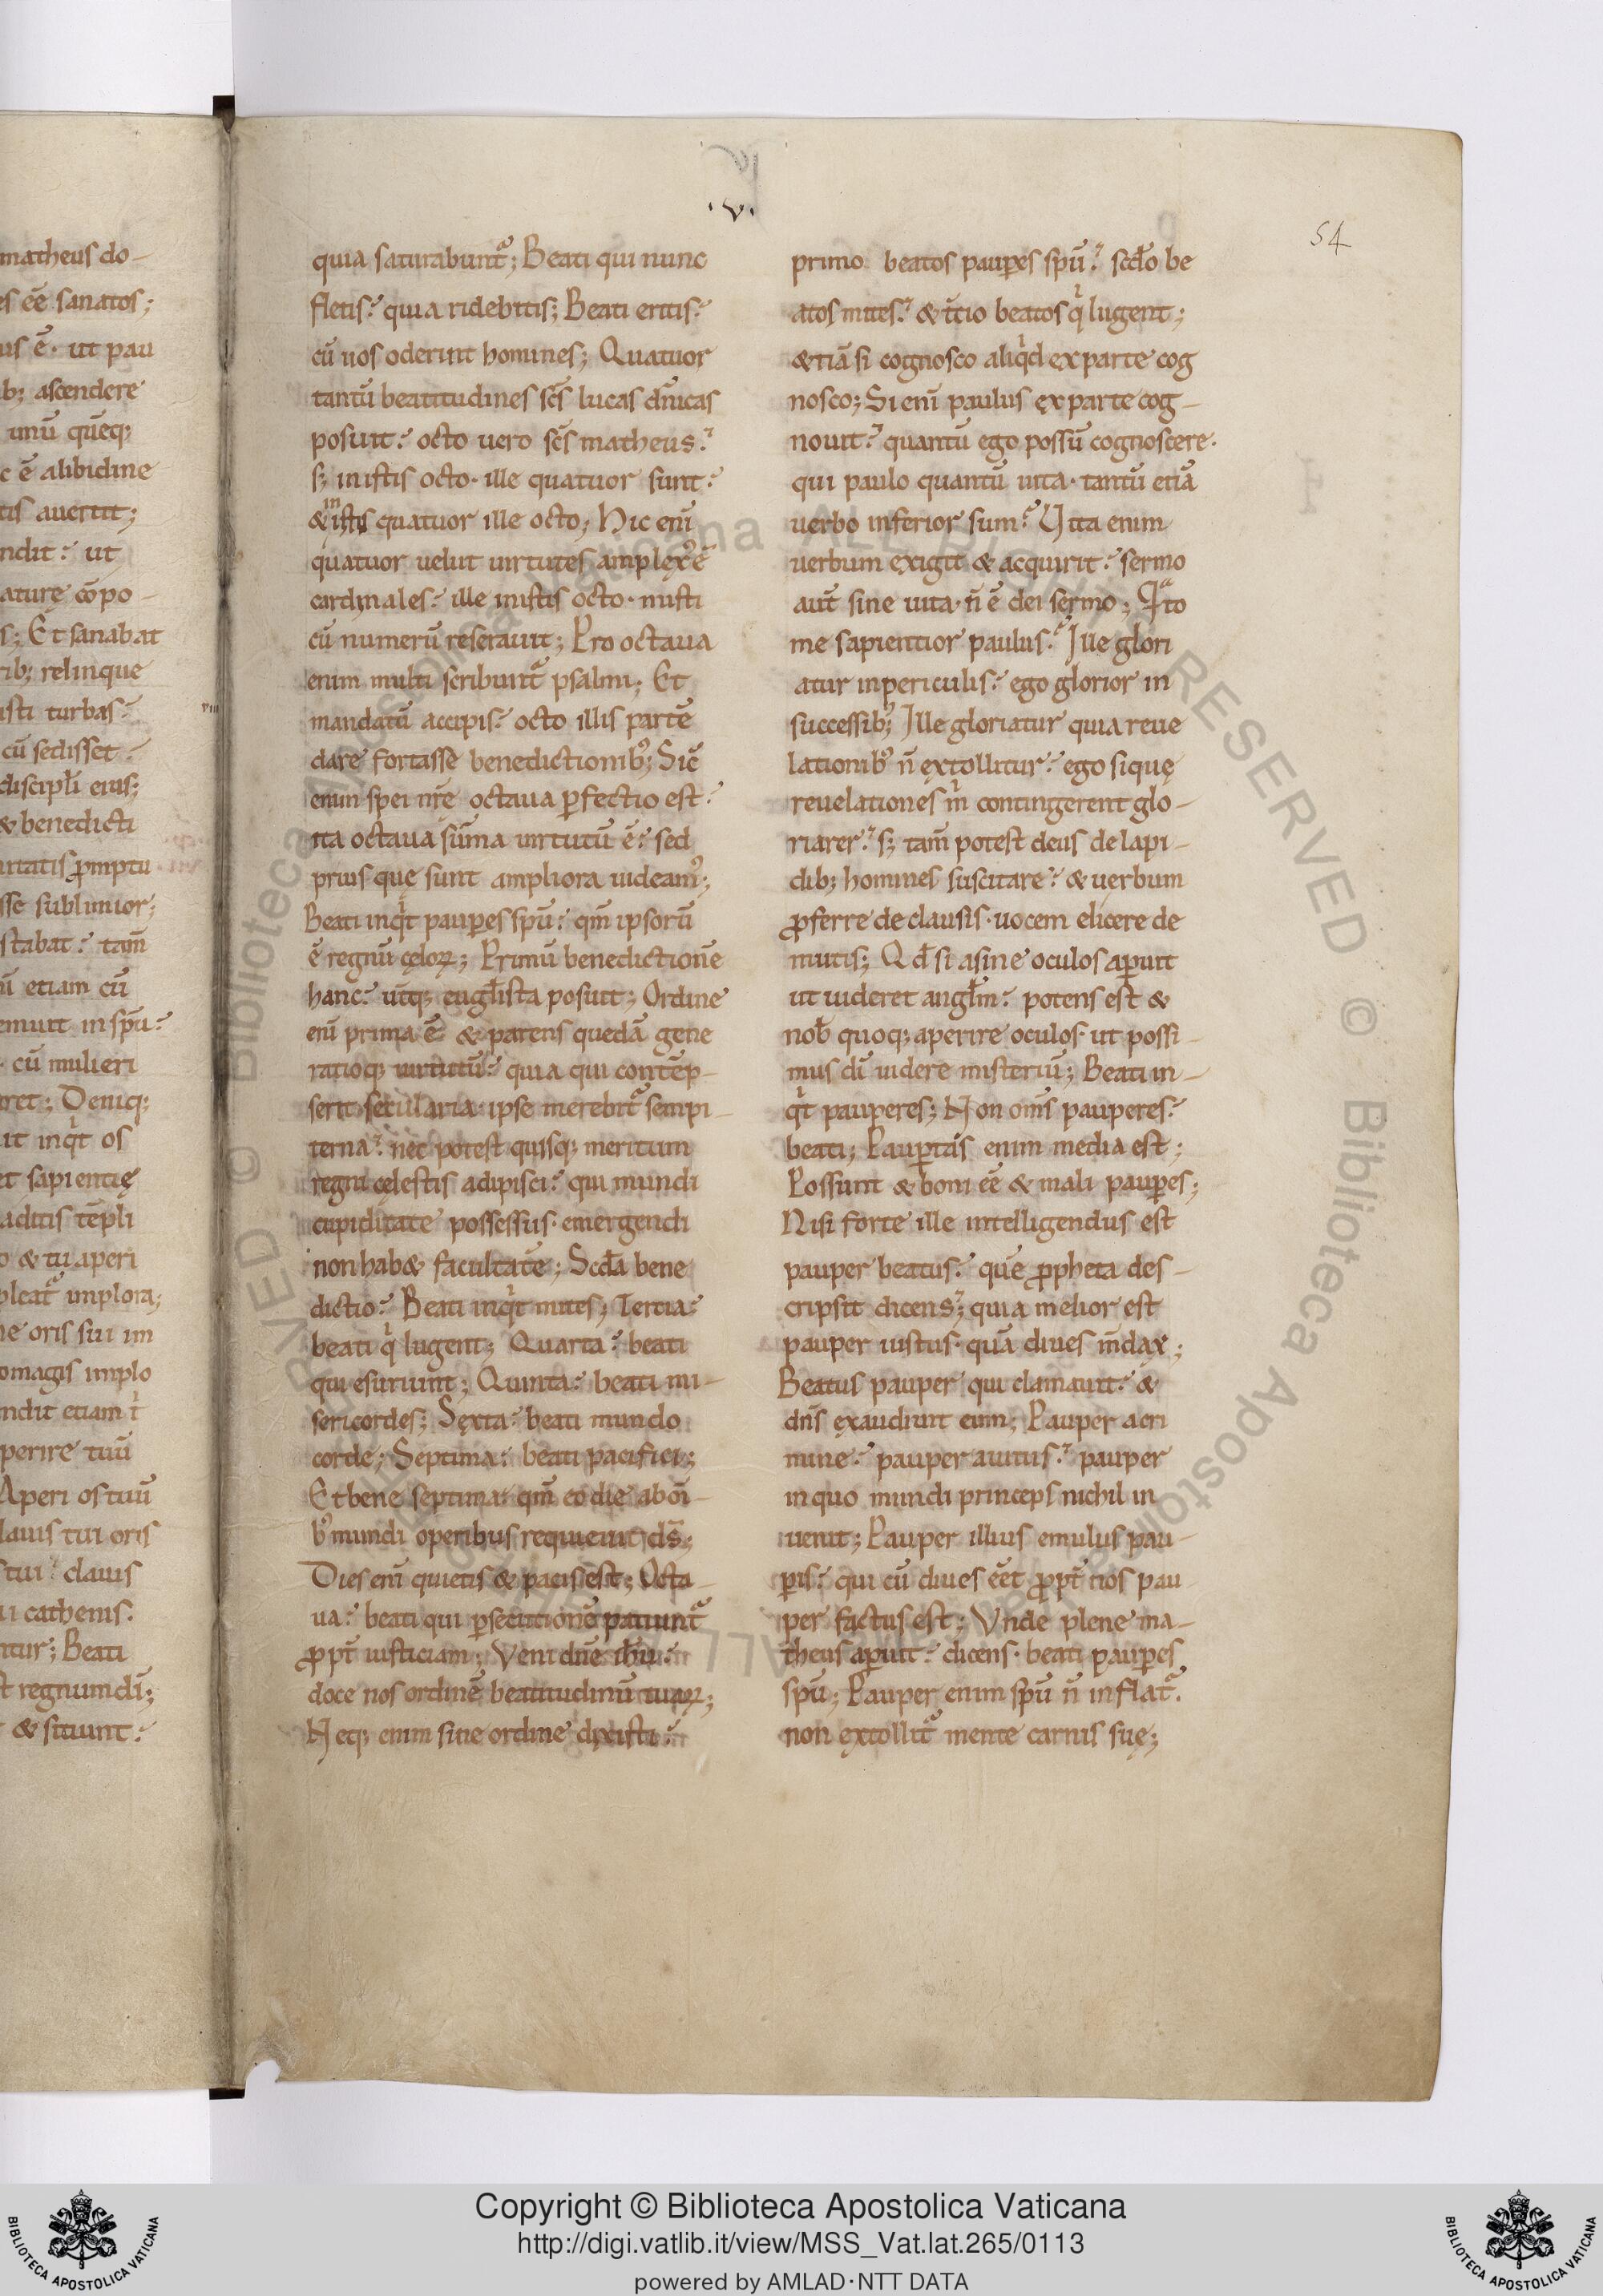 matheus do-
es eē sanatos;
us ē· ut pau
b; ascendere
unū quēq;
c ē alibidine
tis auertit;
ndit? ut
ature cōpo-
s; Et sanabat
rib; relinque
isti turbas?
cū sedisset?
discipli eius;
& benedicti
uritatis promptu
sse sublimior;
stabat? tam̄
ū etiam cū
emuit in spū?
· cū mulieri
aret; Deniq;
it inqͥt os
et sapientię
aditis tēpli
o & tu aperi
pleat᷑ implora;
ne oris sui im
omagis implo
ndit etiam t̄
perire tuū
Aperi os tuū
lauis tui oris
tui? clauis
ui cathenis.
ntur; Beati
t regnum dī;
& sitiunt?
viii
.v.
54
quia saturabunt᷑; Beati qui nunc
fletis? quia ridebitis; Beati eritis?
cū uos oderint homines; Quatuor
tantū beatitudines scs̄ lucas dn̄icas
posuit? octo uero scs̄ matheus?
s; in istis octo· ille quatuor sunt?
& in istis quatuor ille octo; Hic eni
quatuor uelut uirtutes amplex᷒ ē
cardinales? ille inistis octo· misti
cū numerū reserauit; Pro octaua
enim multi scribunt᷑ psalmi; Et
mandatū accipis? octo illis partē
dare fortasse benedictionib᷒; Sic̄
enim spei nr̄e octaua ꝑfectio est?
ita octaua sūma uirtutū ē? sed
prius que sunt ampliora uideam᷒;
Beati inqͥt pauꝑes spū? qm̄ ipsorū
ē regnū cęloꝝ; Primū benedictionē
hanc? utq; eugłista posuit; Ordine
eni prima ē & parens quedā gene
ratioq; uirtutū? quia qui contēp-
serit secularia· ipse merebit᷑ sempi-
terna? nec potest quisq; meritum
regni cęlestis adipisci? qui mundi
cupiditate possessus· emergendi
non hab& facultatē; Scd̄a bene
dictio? Beati inqͥt mites; Tertia?
beati qͥ lugent; Quarta? beati
qui esuriunt; Quinta? beati mi-
sericordes; Sexta? beati mundo
corde; Septima? beati pacifici;
Et bene septima· qm̄ eo die ab oī-
b᷒ mundi operibus requieuit ds̄;
Dies eni quietis & pacis est; Octa-
ua? beati qui ꝑsecutionē patiunt᷑
ꝓpt̄ iusticiam; Veni dn̄e ihu?
doce nos ordinē beatitudinū tuaꝝ;
Neq; enim sine ordine dixisti?
primo beatos pauꝑes spū? scd̄o be
atos mites? & t̄tio beatos qͥ lugent;
&tiā si cognosco aliqͥd ex parte cog
nosco; Si eni paulus ex parte cog-
nouit? quantū ego possū cognoscere·
qui paulo quantū uita· tantū etiā
uerbo inferior sum? Vita enim
uerbum exigit & acquirit? sermo
aut̄ sine uita· n̄ ē dei sermo; Qᵃto
me sapientior paulus? Ille glori
atur inpericulis? ego glorior in
successib᷒; Ille gloriatur quia reue
lationib᷒ n̄ extollitur? ego si que
reuelationes mͥ contingerent glo-
riarer? s; tam̄ potest deus de lapi-
dib; homines suscitare? & uerbum
ꝓferre de clausis· uocem elicere de
mutis; Qd̄ si asine oculos aꝑuit
ut uideret angłm? potens est &
nob̄ quoq; aperire oculos· ut possi-
mus dī uidere misteriū; Beati in-
qͥt pauperes; Non oms̄ pauperes?
beati; Pauꝑtas enim media est;
Possunt & boni eē & mali pauꝑes;
Nisi forte ille intelligendus est
pauper beatus? quē ꝓpheta des-
cripsit dicens? quia melior est
pauper iustus· quā diues m̄dax;
Beatus pauper qui clamauit? &
dn̄s exaudiuit eum; Pauper acri
mine? pauper auitus? pauper
in quo mundi princeps nichil in
uenit; Pauper illius emulus pau-
ꝑis? qui cū diues eēt ꝓpt̄ nos pau
per factus est; Vnde plene ma-
theus aꝑuit? dicens· beati pauꝑes
spū; Pauper enim spū n̄ inflat᷑.
non extollit᷑ mente carnis suę;
Copyright © Biblioteca Apostolica Vaticana
http://digi.vatlib.it/view/MSS_Vat.lat.265/0113
powered by AMLAD·NTT DATA
BIBLIOTECA APOSTOLICA VATICANA
BIBLIOTECA APOSTOLICA VATICANA